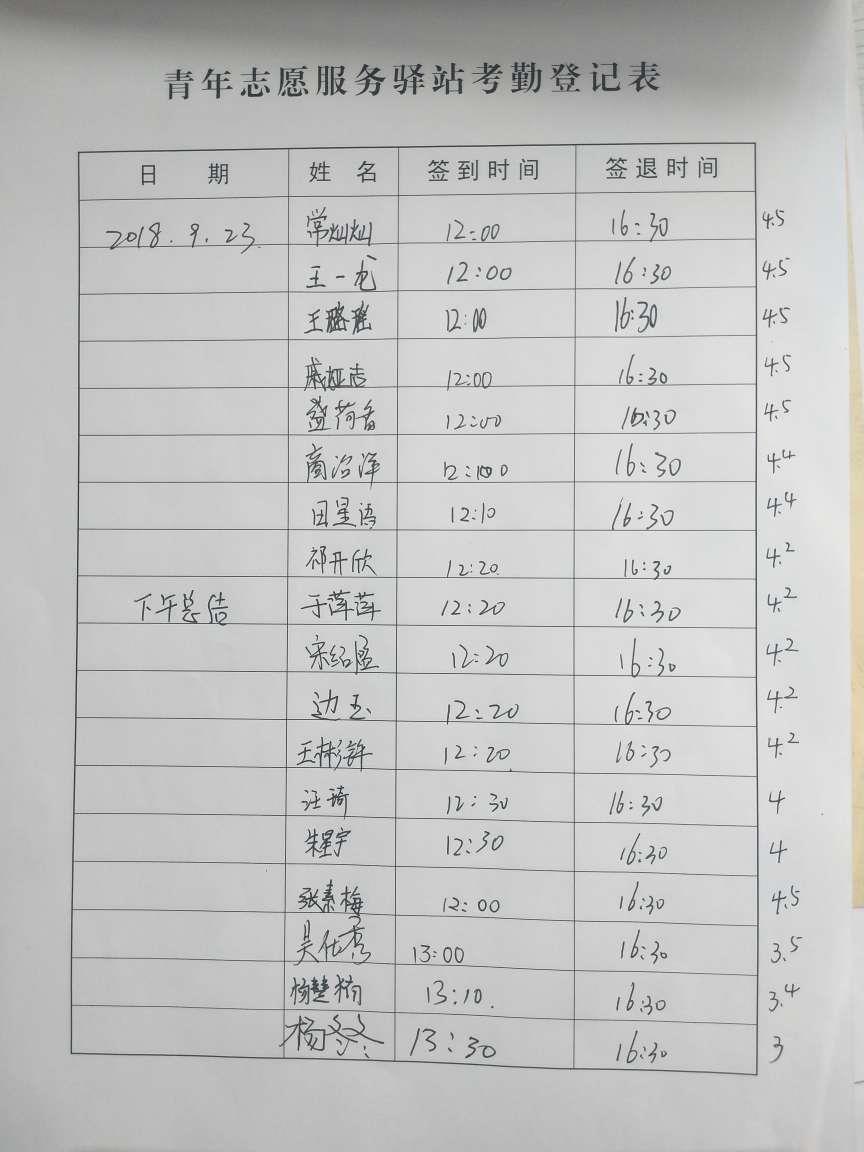 青年志愿服务驿站考勤登记表
日 期 姓 名 签到时间 签退时间
2018.9.23 常灿灿 12:00 16:30 4.5
王一龙 12:00 16:30 4.5
王璐瑶 12:00 16:30 4.5
12:00 16:30 4.5
12:00 16:30 4.5
商冶泽 16:30 4.4
田星语 12:10 16:30 4.4
祁开欣 12:20 16:30 4.2
下午总结 于莲莲 12:20 16:30 4.2
宋绍盈 12:20 16:30 4.2
边玉 12:20 16:30 4.2
王彬 12:20 16:30 4.2
汪琦 12:30 16:30 4
朱星宇 12:30 16:30 4
张素梅 12:00 16:30 4.5
吴仕秀 13:00 16:30 3.5
杨楚楠 13:10. 16:30 3.4
杨冬冬 13:30 16:30 3